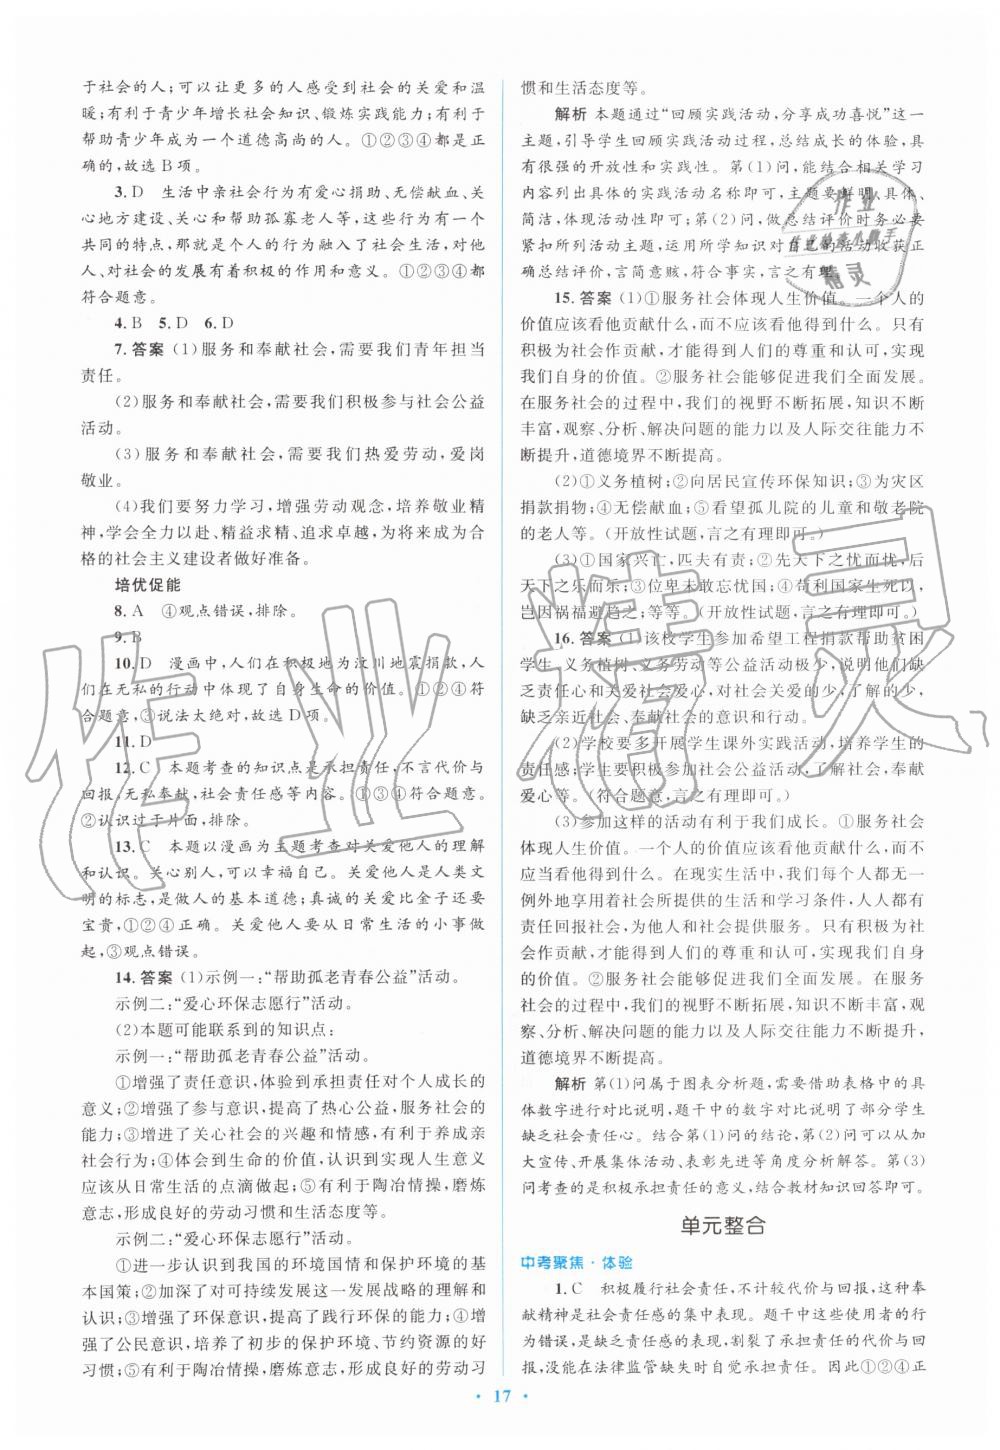 于社会的人;可以让更多的人感受到社会的关爱和温
暖;有利于青少年增长社会知识、锻炼实践能力;有利于
帮助青少年成为一个道德高尚的人。①②③④都是正
确的,故选B项。
3. D 生活中亲社会行为有爱心捐助、无偿献血、关
心地方建设、关心和帮助孤寡老人等,这些行为有一个
共同的特点,那就是个人的行为融入了社会生活,对他
人、对社会的发展有着积极的作用和意义。①②③④都
符合题意。
4. B 5. D 6. D
7. 答案 (1)服务和奉献社会,需要我们青年担当
责任。
(2)服务和奉献社会,需要我们积极参与社会公益
活动。
(3)服务和奉献社会,需要我们热爱劳动,爱岗
敬业。
(4)我们要努力学习,增强劳动观念,培养敬业精
神,学会全力以赴、精益求精、追求卓越,为将来成为合
格的社会主义建设者做好准备。
培优促能
8. A ④观点错误,排除。
9. B
10. D 漫画中,人们在积极地为汶川地震捐款,人
们在无私的行动中体现了自身生命的价值。①②④符
合题意,③说法太绝对,故选D项。
11. D
12. C 本题考查的知识点是承担责任,不言代价与
回报,无私奉献,社会责任感等内容。①③④符合题意。
②认识过于片面,排除。
13. C 本题以漫画为主题考查对关爱他人的理解
和认识。关心别人,可以幸福自己。关爱他人是人类文
明的标志,是做人的基本道德;真诚的关爱比金子还要
宝贵,①②④正确。关爱他人要从日常生活的小事做
起,③观点错误。
14. 答案 (1)示例一:“帮助孤老青春公益”活动。
示例二:“爱心环保志愿行”活动。
(2)本题可能联系到的知识点:
示例一:“帮助孤老青春公益”活动。
①增强了责任意识,体验到承担责任对个人成长的
意义;②增强了参与意识,提高了热心公益,服务社会的
能力;③增强了关心社会的兴趣和情感,有利于养成亲
社会行为;④体会到生命的价值,认识到实现人生意义
应该从日常生活的点滴做起;⑤有利于陶冶情操,磨炼
意志,形成良好的劳动习惯和生活态度等。
示例二:“爱心环保志愿行”活动。
①进一步认识到我国的环境国情和保护环境的基
本国策;②加深了对可持续发展这一发展战略的理解和
认识;③增强了环保意识,提高了践行环保的能力;④增
强了公民意识,培养了初步的保护环境、节约资源的好
习惯;⑤有利于陶冶情操、磨炼意志,形成良好的劳动习
惯和生活态度等。
解析 本题通过“回顾实践活动,分享成功喜悦”这一
主题,引导学生回顾实践活动过程,总结成长的体验,具
有很强的开放性和实践性。第(1)问,能结合相关学习
内容列出具体的实践活动名称即可,主题要鲜明、具体、
简洁,体现活动性即可;第(2)问,做总结评价时务必要
紧扣所列活动主题,运用所学知识对自己的活动收获正
确总结评价,言简意赅、符合事实,言之有理。
15. 答案 (1)①服务社会体现人生价值。一个人的
价值应该看他贡献什么,而不应当看他取得什么。只有
积极为社会作贡献,才能得到人们的尊重和认可,实现
我们自身的价值。②服务社会能够促进我们全面发展。
在服务社会的过程中,我们的视野不断拓展,知识不断
丰富,观察、分析、解决问题的能力以及人际交往能力不
断提升,道德境界不断提高。
(2)①义务植树;②向居民宣传环保知识;③为灾区
捐款捐物;④无偿献血;⑤看望孤儿院的儿童和敬老院
的老人等。(开放性试题,言之有理即可。)
(3)①国家兴亡,匹夫有责;②先天下之忧而忧,后
天下之乐而乐;③位卑未敢忘忧国;④苟利国家生死以,
岂因祸福避趋之;等等。(开放性试题,言之有理即可。)
16. 答案 (1)该校学生参加希望工程捐款帮助贫困
学生、义务植树、义务劳动等公益活动极少,说明他们缺
乏责任心和关爱社会爱心,对社会关爱的少,了解的少,
缺乏亲近社会、奉献社会的意识和行动。
(2)学校要多开展学生课外实践活动,培养学生的
责任感;学生要积极参加社会公益活动,了解社会,奉献
爱心等。(符合题意,言之有理即可。)
(3)参加这样的活动有利于我们成长。①服务社会
体现人生价值。一个人的价值应该看他贡献什么,而不
应当看他取得什么。在现实生活中,我们每个人都无一
例外地享用着社会所提供的生活和学习条件,人人都有
责任回报社会,为他人和社会提供服务。只有积极为社
会作贡献,才能得到人们的尊重和认可,实现我们自身
的价值。②服务社会能够促进我们全面发展。在服务
社会的过程中,我们的视野不断拓展,知识不断丰富,观
察、分析、解决问题的能力以及人际交往能力不断提升,
道德境界不断提高。
解析 第(1)问属于图表分析题,需要借助表格中的具
体数字进行对比说明,题干中的数字对比说明了部分学生
缺乏社会责任心。结合第(1)问的结论,第(2)问可以从加
大宣传、开展集体活动、表彰先进等角度分析解答。第(3)
问考查的是积极承担责任的意义,结合教材知识回答即可。
单元整合
中考聚焦·体验
1. C 积极履行社会责任,不计较代价与回报,这种奉
献精神是社会责任感的集中表现。题干中这些使用者的行
为错误,是缺乏责任感的表现,割裂了承担责任的代价与回
报,没能在法律监管缺失时自觉承担责任。因此①②④正
· 17 ·
作业精灵
作业
精灵